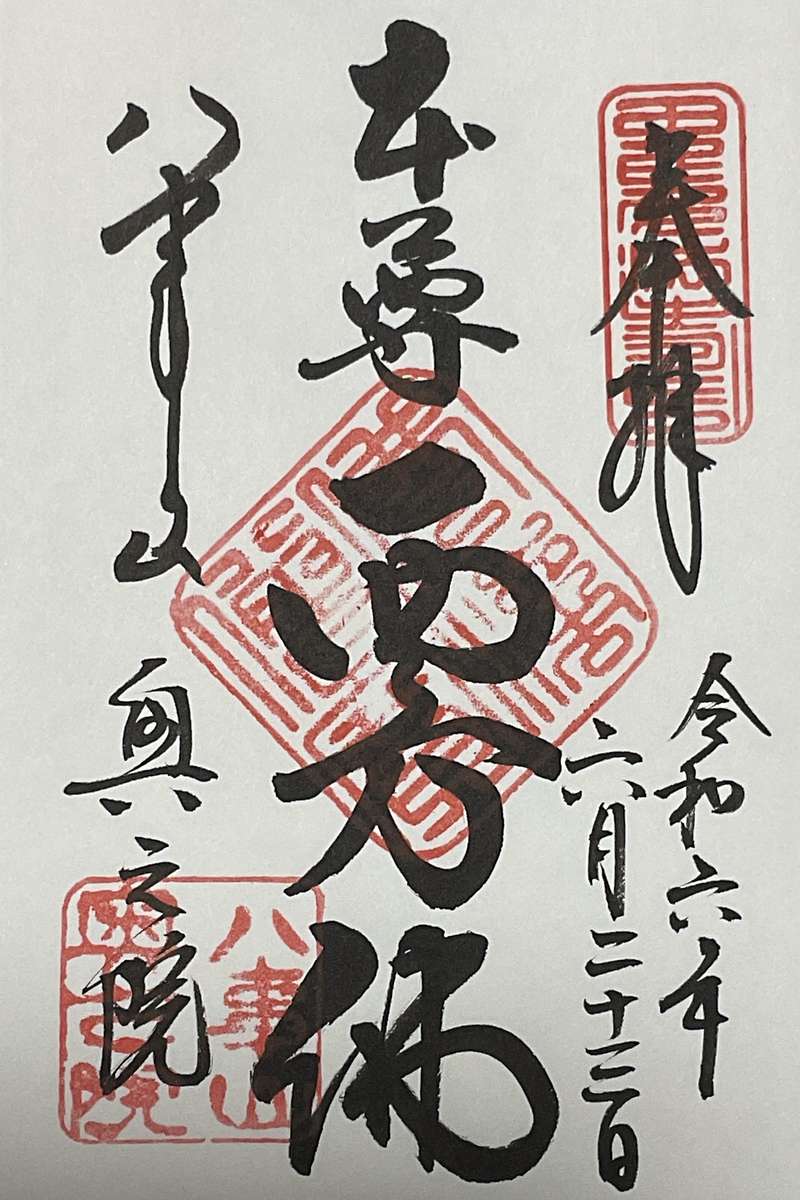 奉拝
令和六年
六月二十三日
本尊西方佛
八事山 奥之院
八事山
奥之院